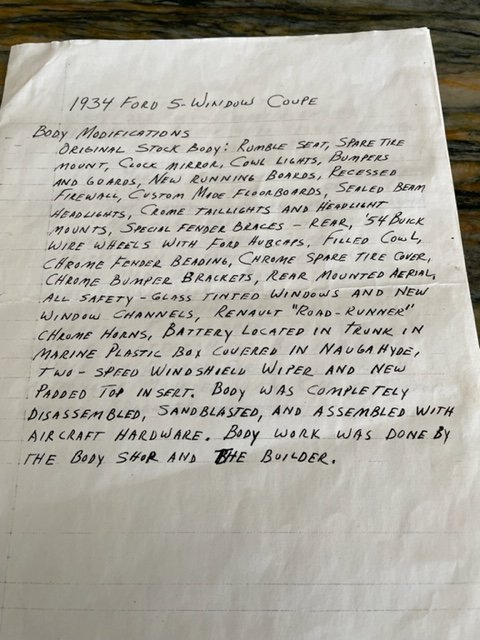 1934 FORD 5-WINDOW COUPE
BODY MODIFICATIONS
ORIGINAL STOCK BODY: RUMBLE SEAT, SPARE TIRE
MOUNT, CLOCK MIRROR, COWL LIGHTS, BUMPERS
AND GUARDS, NEW RUNNING BOARDS, RECESSED
FIREWALL, CUSTOM MADE FLOORBOARDS, SEALED BEAM
HEADLIGHTS, CROME TAILLIGHTS AND HEADLIGHT
MOUNTS, SPECIAL FENDER BRACES - REAR, '54 BUICK
WIRE WHEELS WITH FORD HUBCAPS, FILLED COWL,
CHROME FENDER BEADING, CHROME SPARE TIRE COVER,
CHROME BUMPER BRACKETS, REAR MOUNTED AERIAL,
ALL SAFETY-GLASS TINTED WINDOWS AND NEW
WINDOW CHANNELS, RENAULT "ROAD-RUNNER"
CHROME HORNS, BATTERY LOCATED IN TRUNK IN
MARINE PLASTIC BOX COVERED IN NAUGAHYDE,
TWO-SPEED WINDSHIELD WIPER AND NEW
PADDED TOP INSERT. BODY WAS COMPLETELY
DISASSEMBLED, SANDBLASTED, AND ASSEMBLED WITH
AIRCRAFT HARDWARE. BODY WORK WAS DONE BY
THE BODY SHOP AND THE BUILDER.